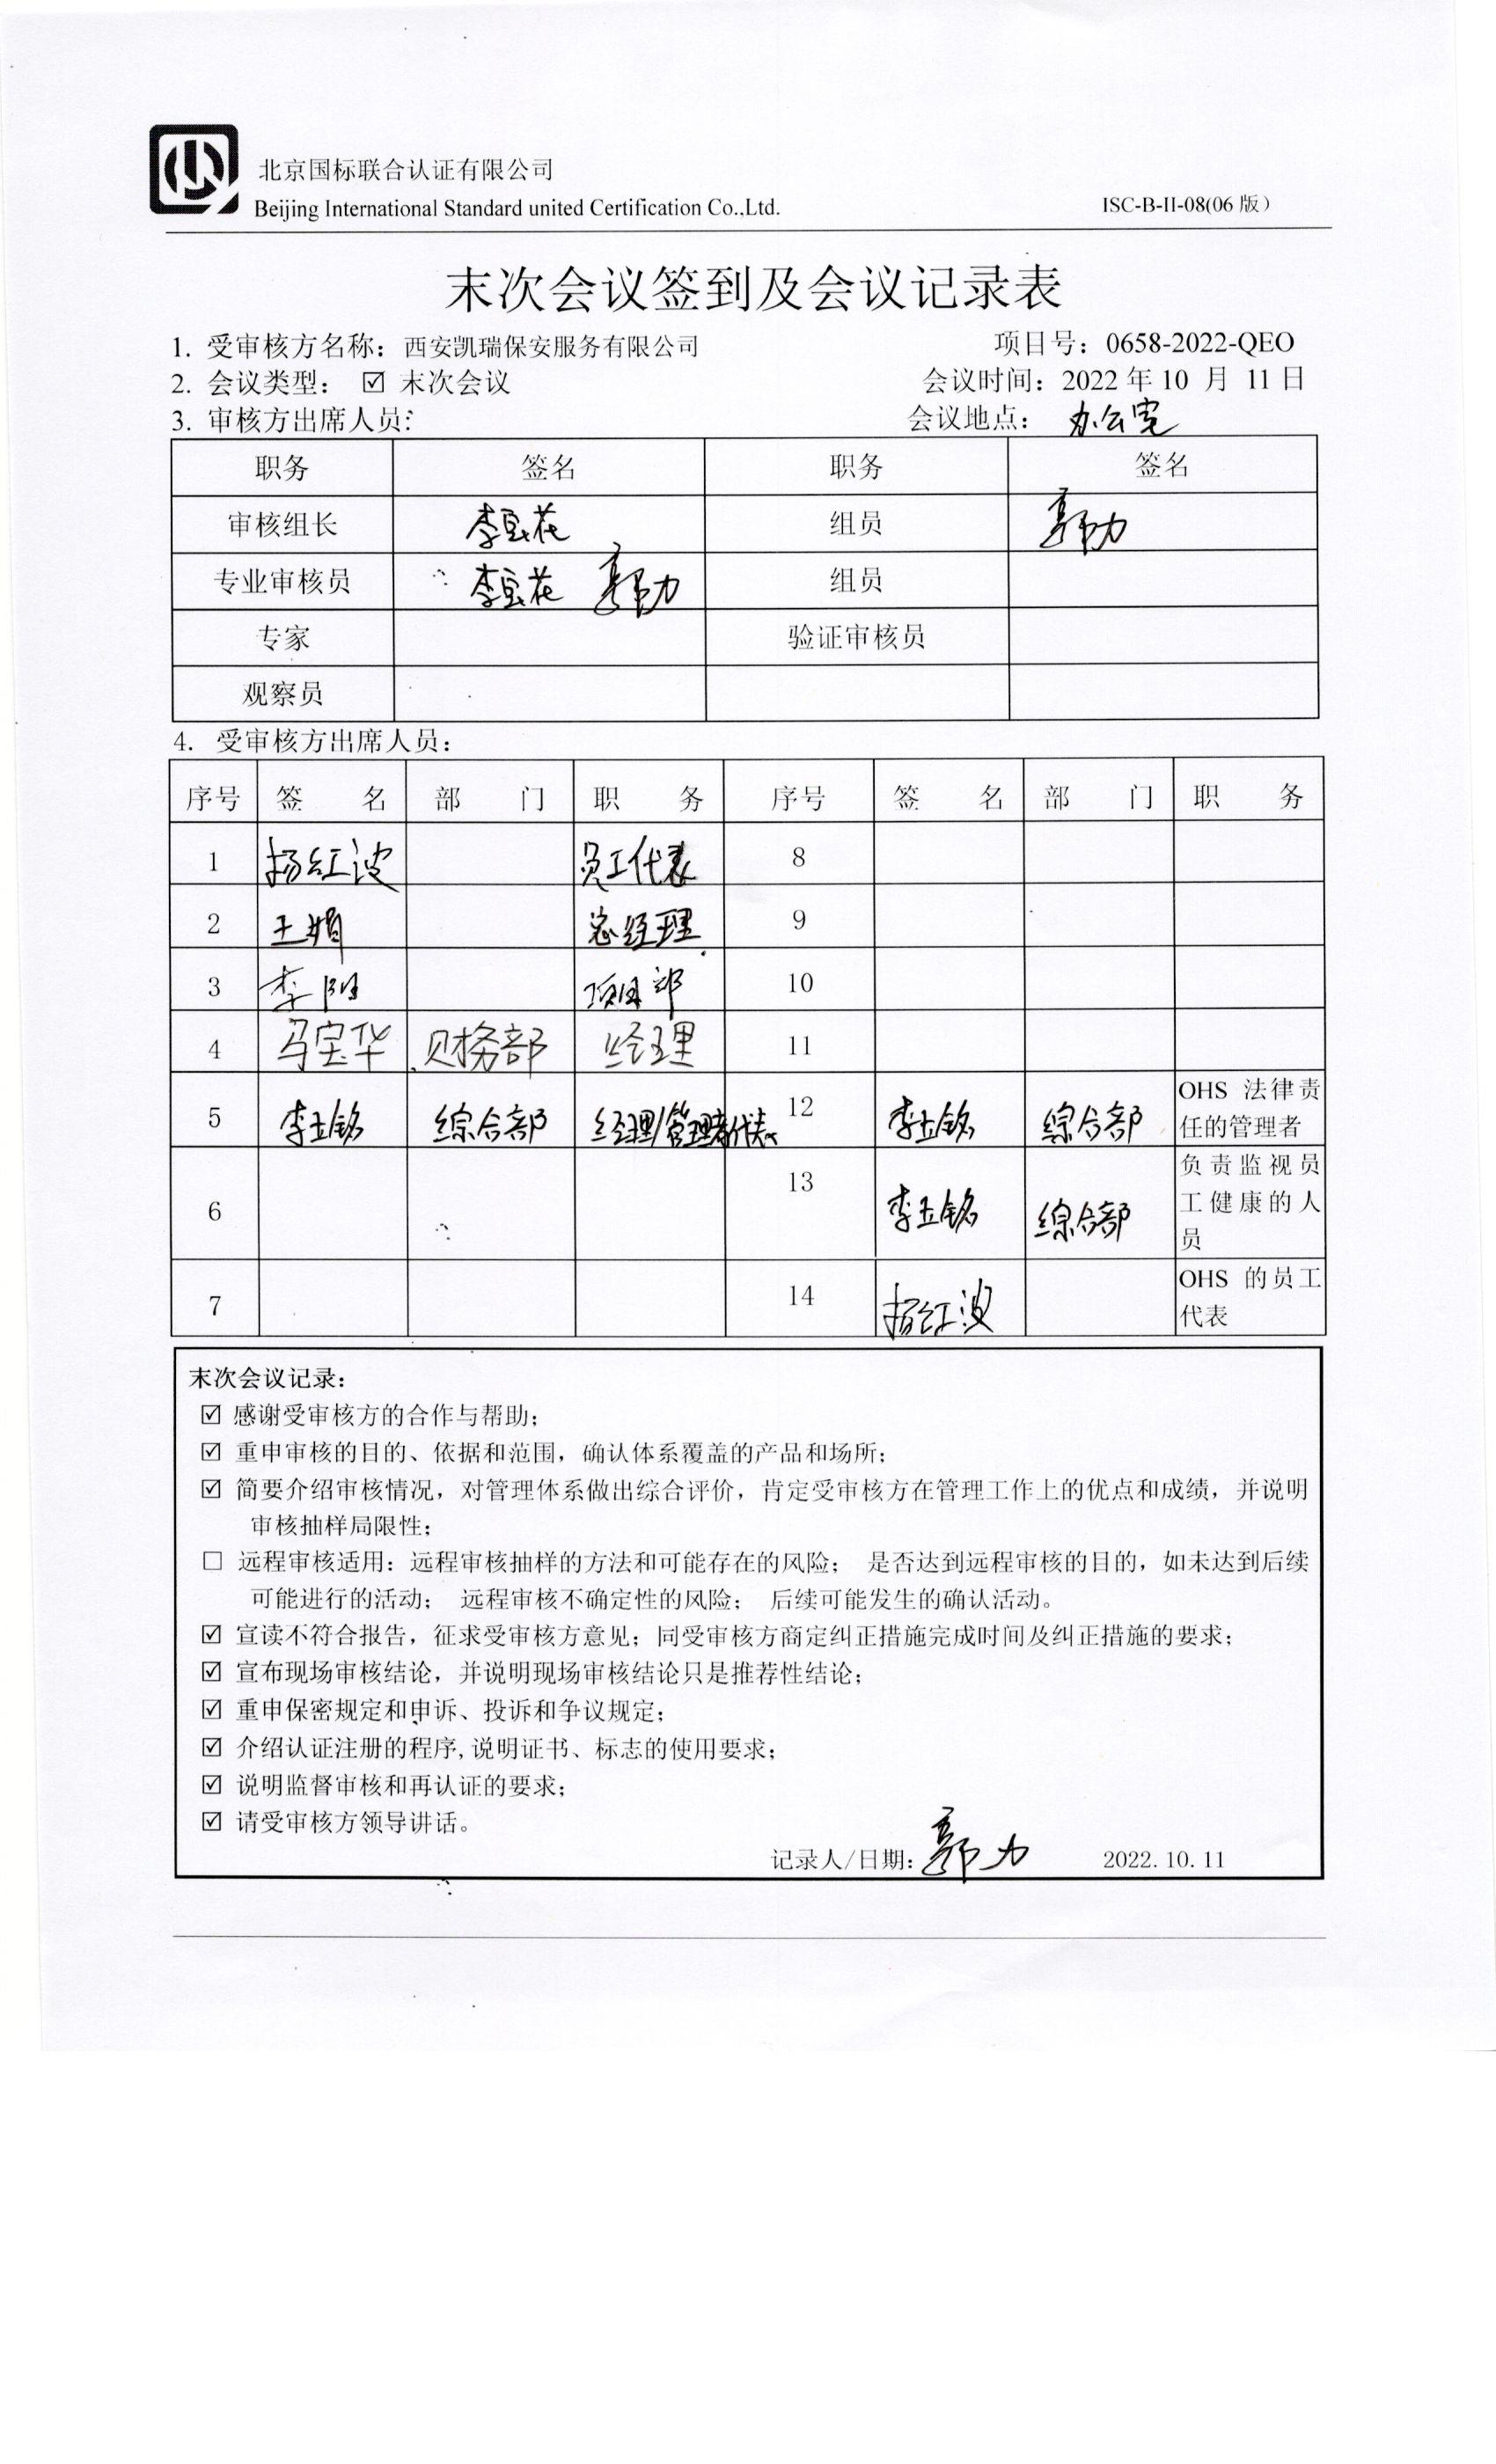 北京国标联合认证有限公司
Beijing International Standard united Certification Co.,Ltd. ISC-B-II-08(06 版)
末次会议签到及会议记录表
1. 受审核方名称：西安凯瑞保安服务有限公司 项目号：0658-2022-QEO
2. 会议类型： ☑ 末次会议 会议时间：2022 年 10 月 11 日
3. 审核方出席人员： 会议地点： 办公室
职务 签名 职务 签名
审核组长 李宝花 组员 郭力
专业审核员 李宝花 郭力 组员
专家 验证审核员
观察员
4. 受审核方出席人员：
序号 签 名 部 门 职 务 序号 签 名 部 门 职 务
1 杨红波 员工代表 8
2 王娟 总经理 9
3 李阳 项目部 10
4 马宝华 财务部 经理 11
5 李玉铭 综合部 经理/管理者代表 12 李玉铭 综合部 OHS 法律责
任的管理者
6 13 李玉铭 综合部 负责监视员
工健康的人
员
7 14 杨红波 OHS 的员工
代表
末次会议记录：
☑ 感谢受审核方的合作与帮助；
☑ 重申审核的目的、依据和范围，确认体系覆盖的产品和场所；
☑ 简要介绍审核情况，对管理体系做出综合评价，肯定受审核方在管理工作上的优点和成绩，并说明
审核抽样局限性；
☐ 远程审核适用：远程审核抽样的方法和可能存在的风险； 是否达到远程审核的目的，如未达到后续
可能进行的活动； 远程审核不确定性的风险； 后续可能发生的确认活动。
☑ 宣读不符合报告，征求受审核方意见；同受审核方商定纠正措施完成时间及纠正措施的要求；
☑ 宣布现场审核结论，并说明现场审核结论只是推荐性结论；
☑ 重申保密规定和申诉、投诉和争议规定；
☑ 介绍认证注册的程序,说明证书、标志的使用要求；
☑ 说明监督审核和再认证的要求；
☑ 请受审核方领导讲话。
记录人/日期：郭力 2022.10.11